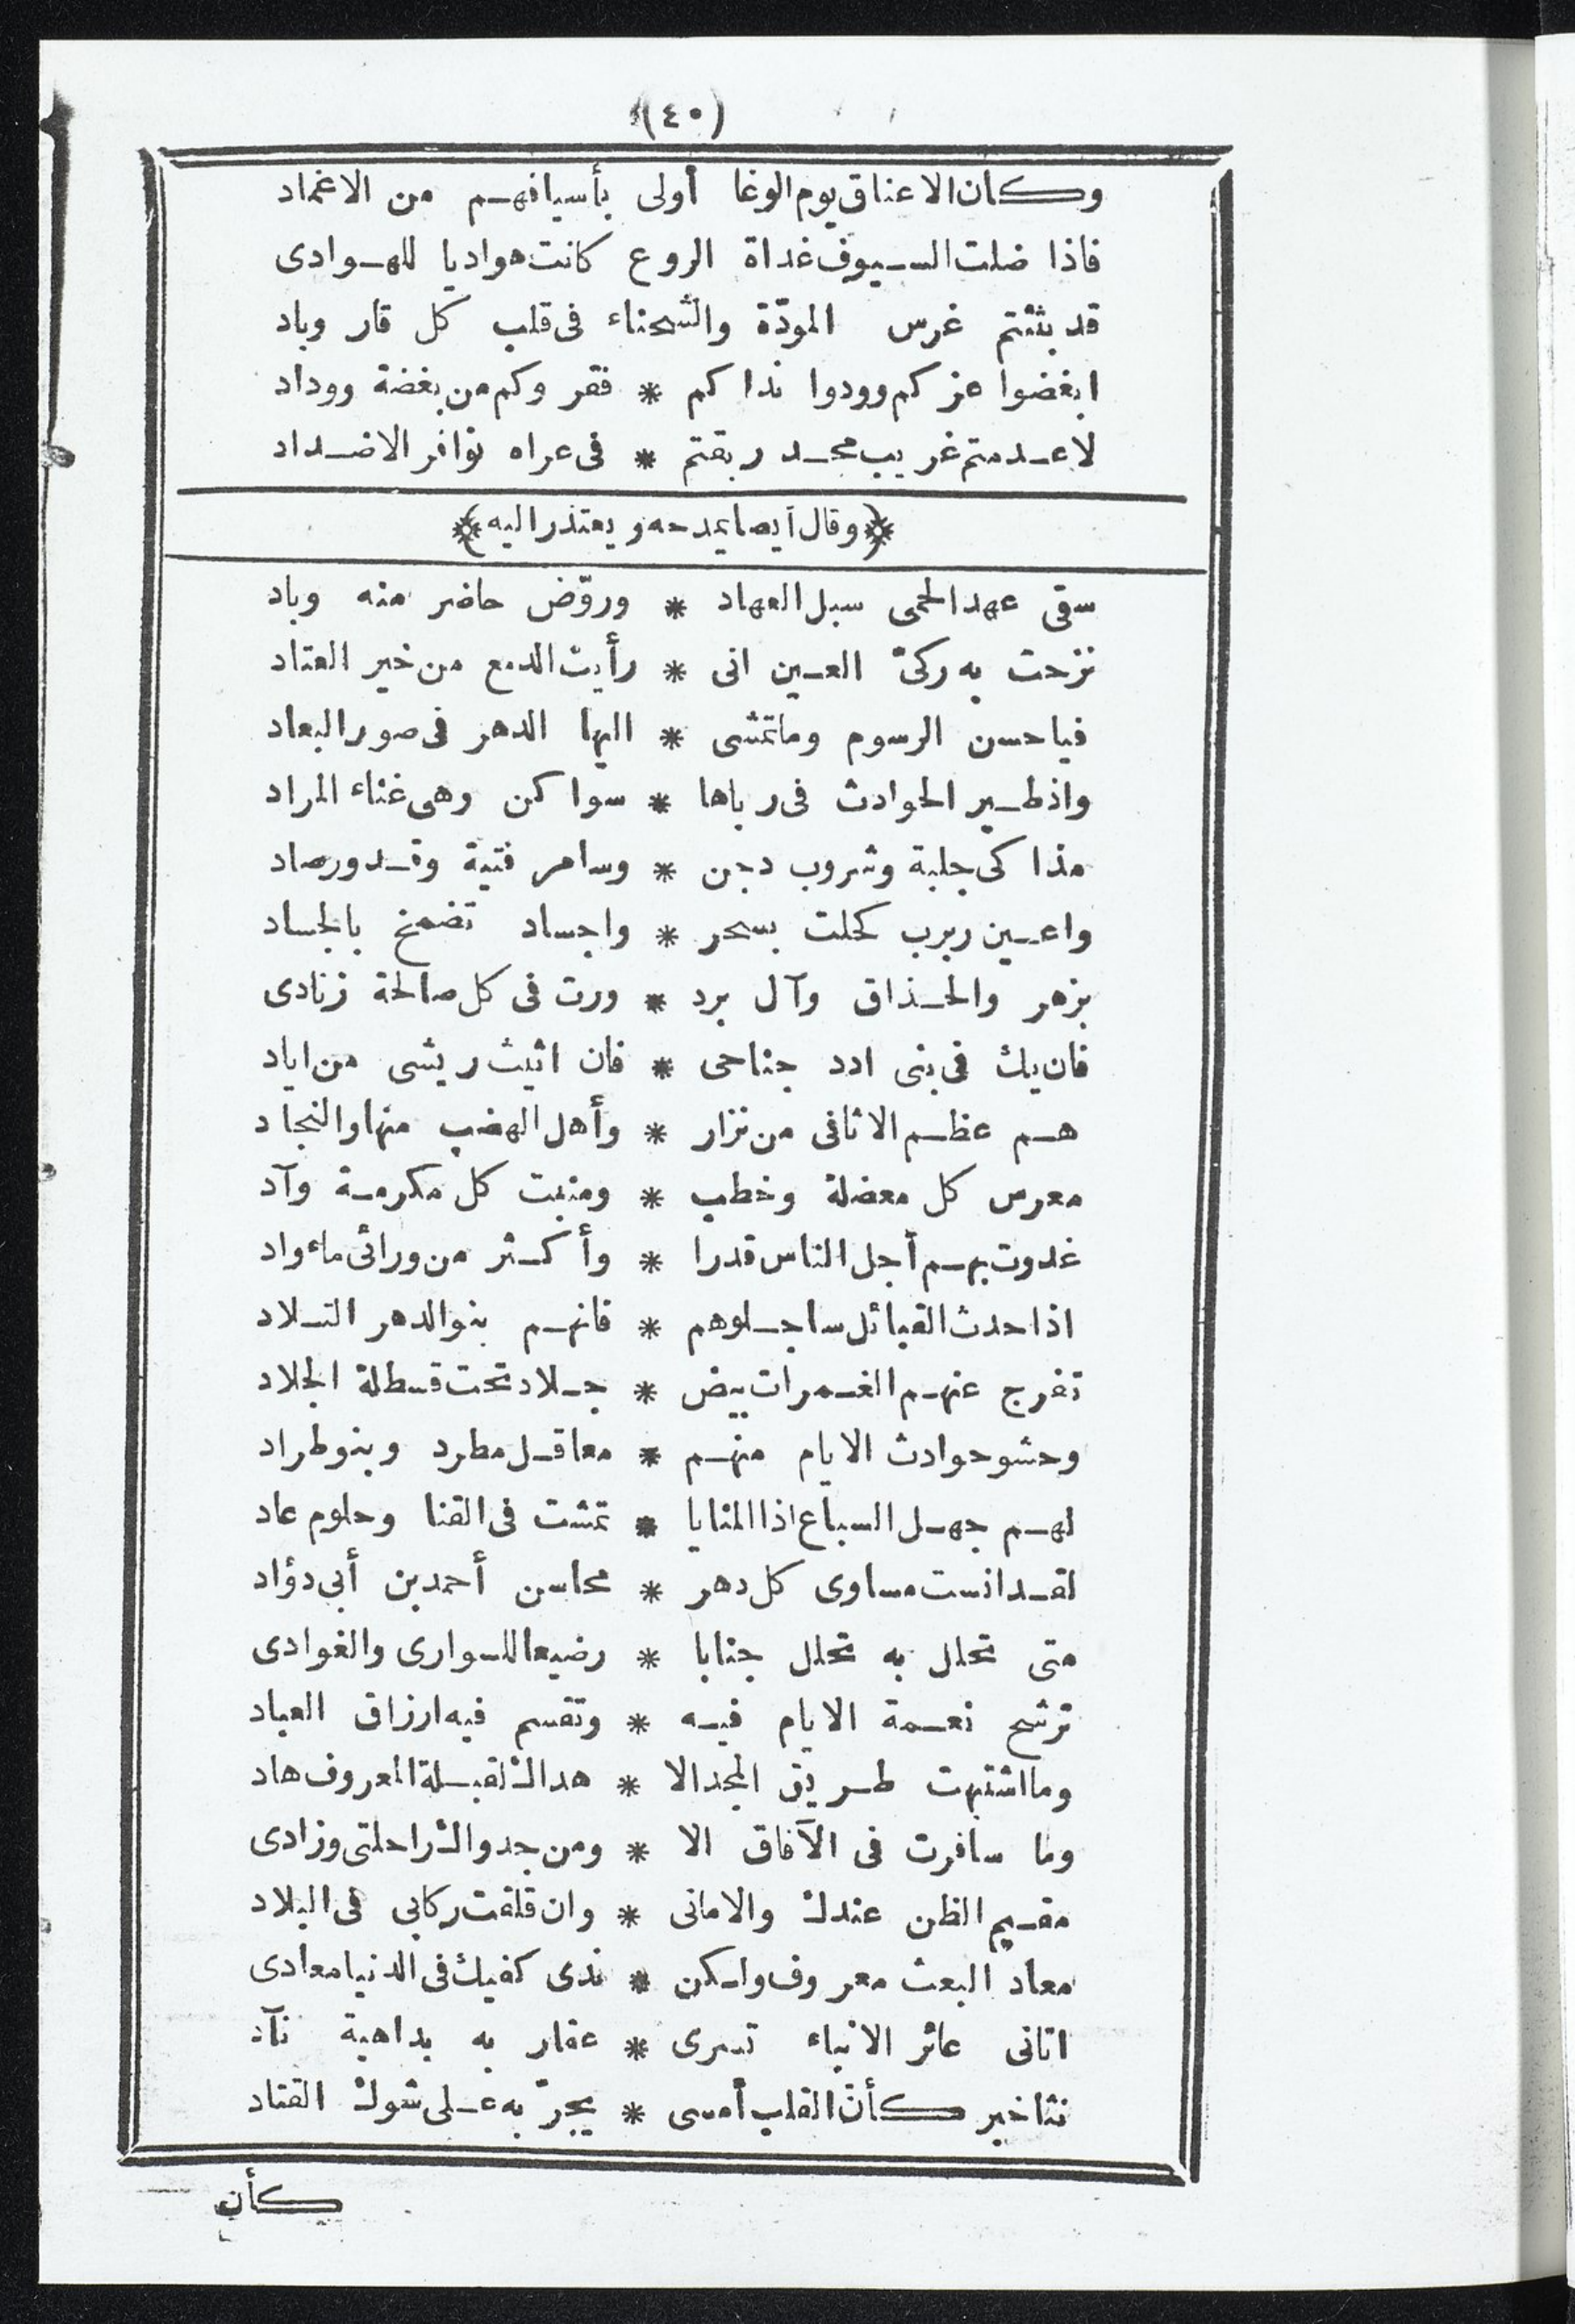 (٤٠)
وكان الاعناق يوم الوغا أولى بأسيافهم من الاغماد
فاذا ضلت السيوف غداة الروع كانت هواديا للهوادى
قد بثثتم غرس المودّة والشحناء فى قلب كل قار وباد
ابغضوا عزكم وودوا نداكم * فقر وكم من بغضة ووداد
لا عدمتم غريب مجد ربقتم * فى عراه نوافر الاضداد
﴿وقال أيضا يمدحه ويعتذر اليه﴾
سقى عهد الحمى سبل العهاد * وروّض حاضر منه وباد
نزحت به ركىّ العين انى * رأيت الدمع من خير العتاد
فيا حسن الرسوم وما تمشى * اليها الدهر فى صور البعاد
واذ طير الحوادث فى رباها * سواكن وهى غناء المراد
مذاكى حلبة وشروب دجن * وسامر فتية وقدور صاد
واعين ربرب كحلت بسحر * واجساد تضمخ بالجساد
بزهر والحذاق وآل برد * ورت فى كل صالحة زنادى
فان يك فى بنى ادد جناحى * فان اثيث ريشى من اياد
هم عظم الاثافى من نزار * وأهل الهضب منها والنجاد
معرس كل معضلة وخطب * ومنبت كل مكرمة وآد
غدوت بهم أجل الناس قدرا * وأكثر من ورائى ماء واد
اذا حدث القبائل ساجلوهم * فانهم بنو الدهر التلاد
تفرج عنهم الغمرات بيض * جلاد تحت قسطلة الجلاد
وحشو حوادث الايام منهم * معاقل مطرد وبنو طراد
لهم جهل السباع اذا المنايا * تمشت فى القنا وحلوم عاد
لقد انست مساوى كل دهر * محاسن أحمد بن أبى دؤاد
متى تحلل به تحلل جنابا * رضيعا للسوارى والغوادى
ترشح نعمة الايام فيه * وتقسم فيه ارزاق العباد
وما اشتبهت طريق المجد الا * هداك لقبلة المعروف هاد
وما سافرت فى الآفاق الا * ومن جدواك راحلتى وزادى
مقيم الظن عندك والامانى * وان قلقت ركابى فى البلاد
معاد البعث معروف ولكن * ندى كفيك فى الدنيا معادى
اتانى عائر الانباء تسرى * عقار به بداهية نآد
نثا خبر كأنّ القلب أمسى * يجرّ به على شوك القتاد
كأن